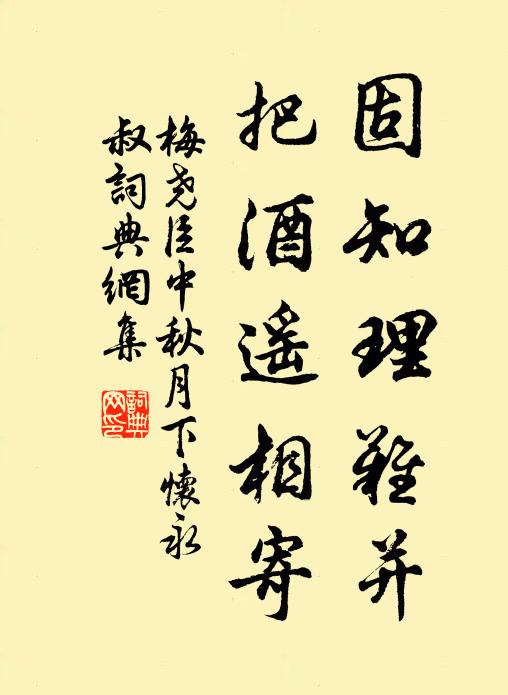 固知理難并
把酒遥相寄
梅堯臣中秋月下懷永
叔詞典網集
詞典
网印